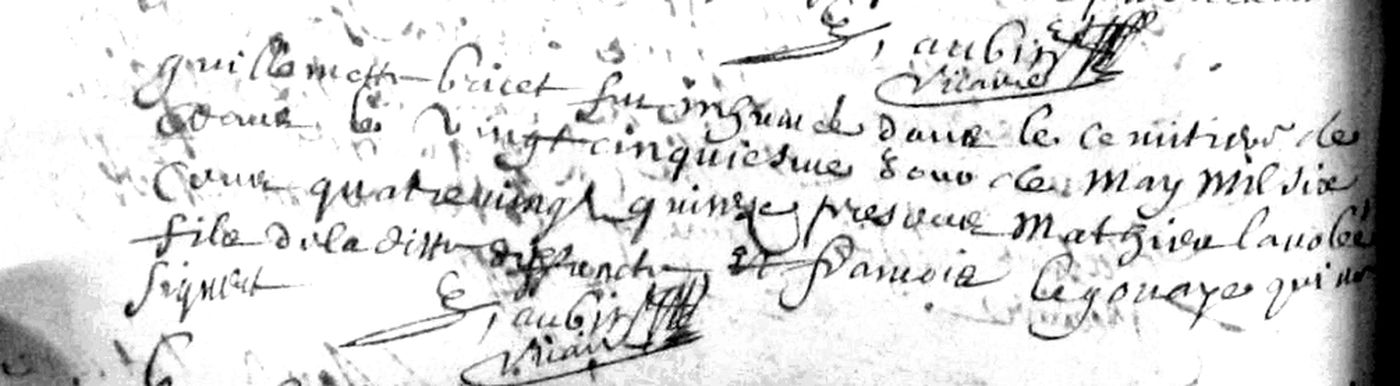 aubin
Vicaire
guillemette bricet fut inhumee dans le cemitiere de
ceans le vingt cinquiesme jour de May Mil six
cens quatrevingt quinze presens Mathieu
fils de la ditte deffuncte, et francois legouaye qui ne
signent
aubin
Vicaire